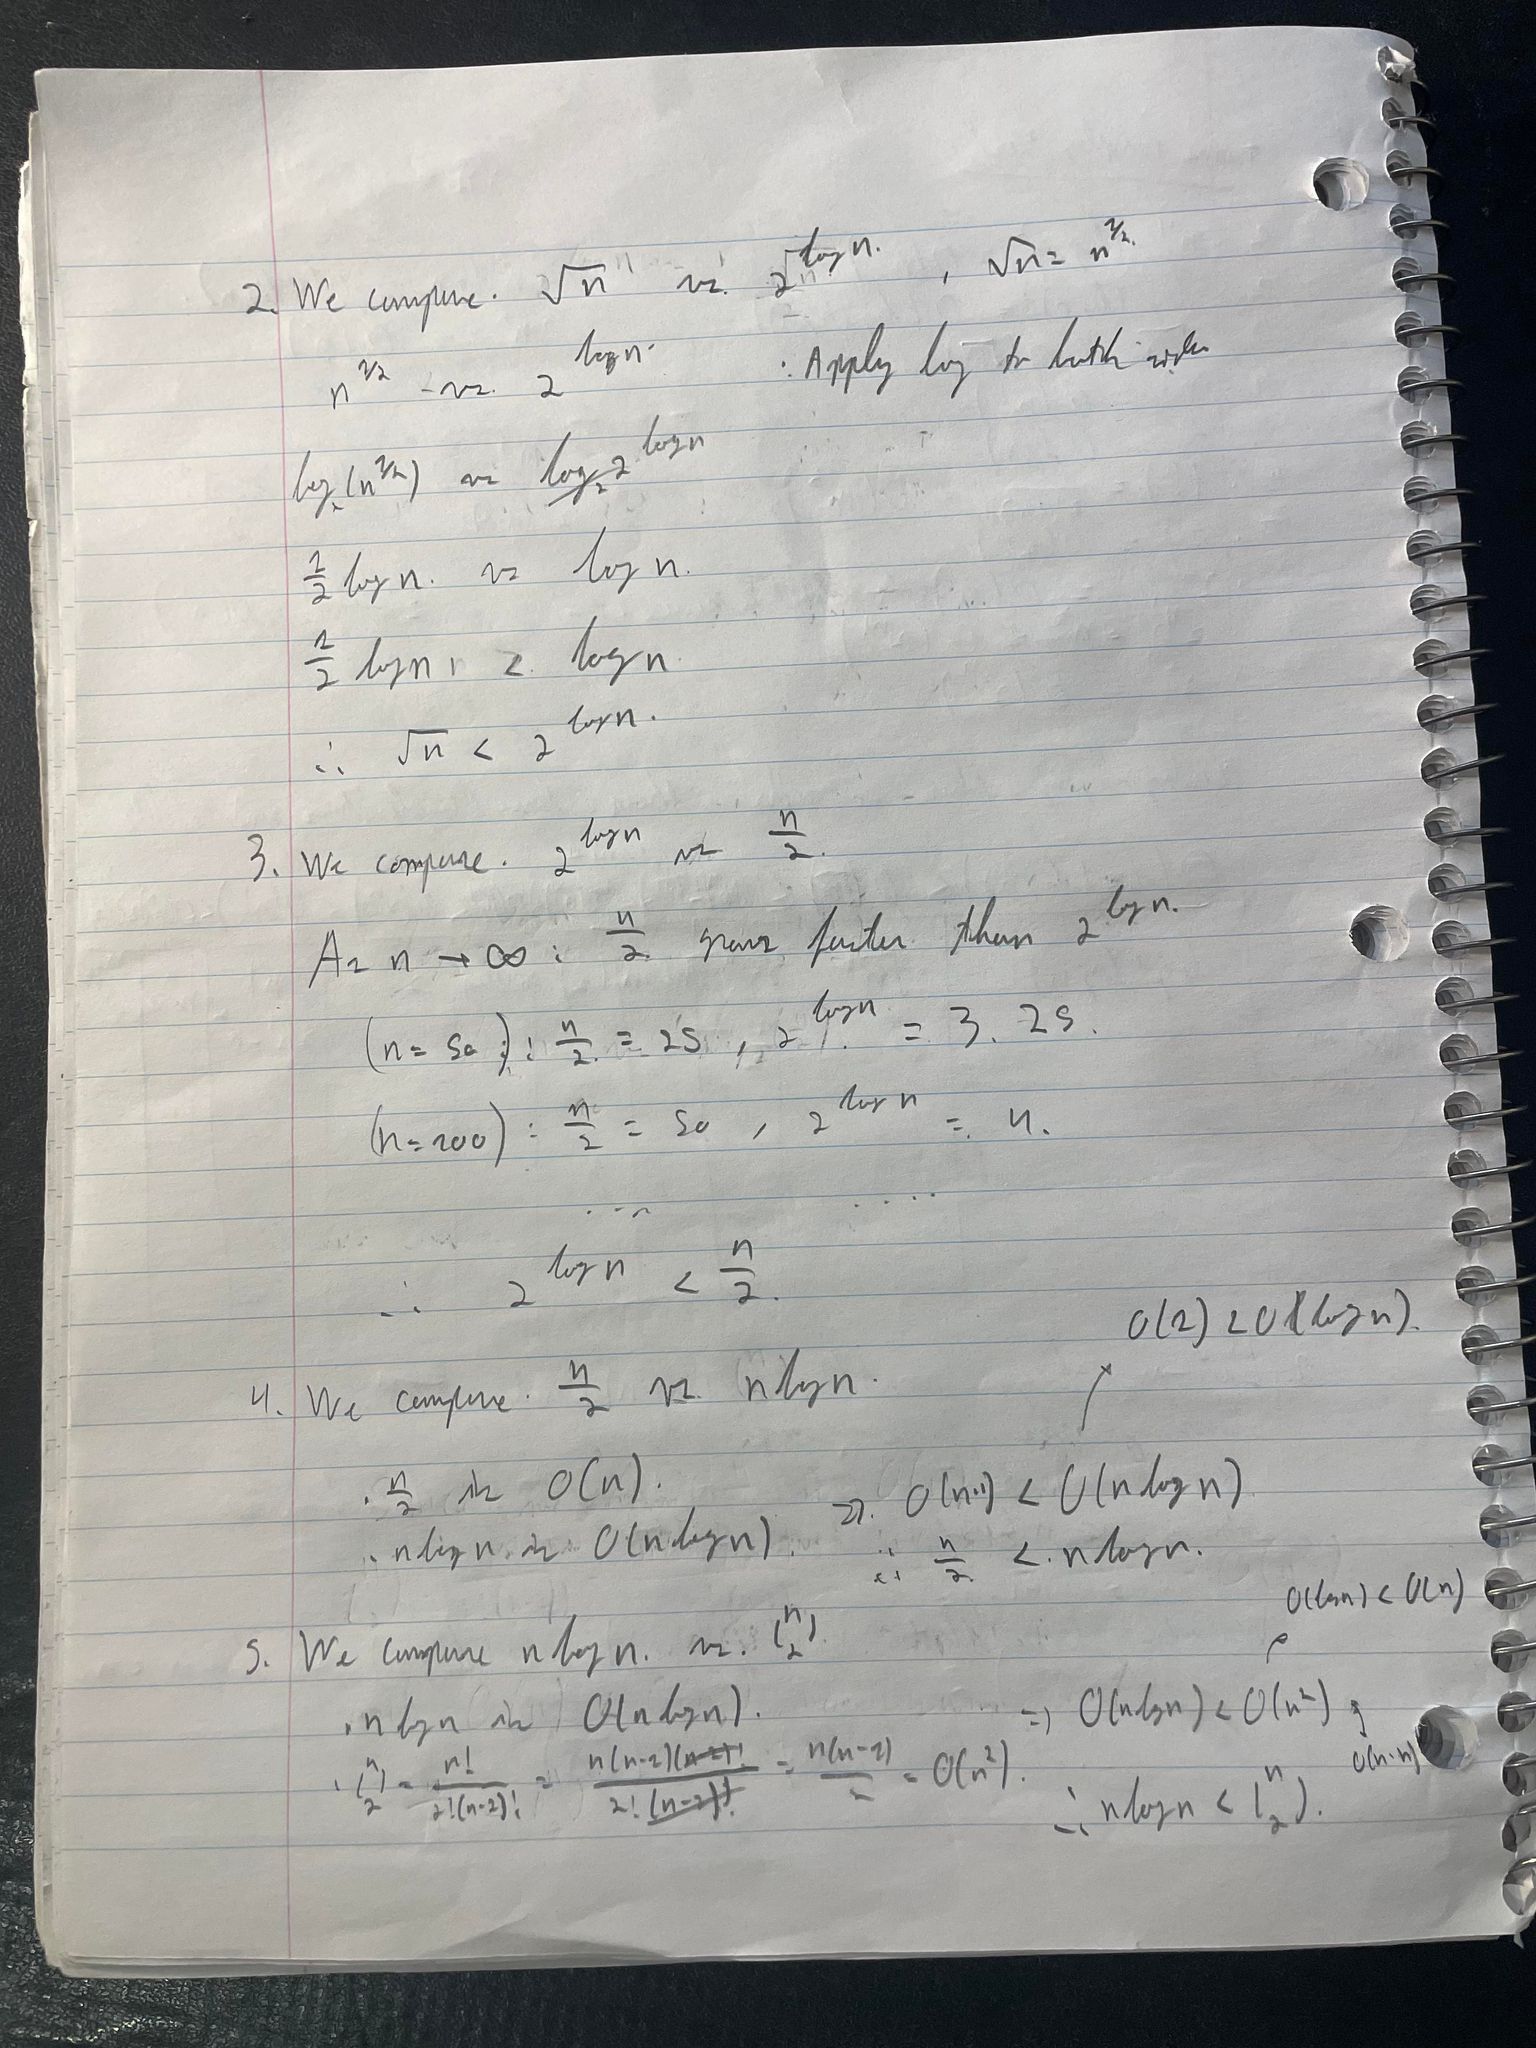 2. We compare. √n vs. 2^log n. , √n = n^1/2.
n^1/2 vs. 2^log n. : Apply log to both sides
log₂(n^1/2) vs log₂2^log n
1/2 log n. vs log n.
1/2 log n < log n
∴ √n < 2^log n.
3. We compare. 2^log n vs n/2.
As n → ∞ : n/2 grows faster than 2^log n.
(n = 50) : n/2 = 25, 2^log n = 3.25.
(n = 100) : n/2 = 50, 2^log n = 4.
.... ....
∴ 2^log n < n/2.
O(1) < O(log n).
4. We compare. n/2 vs. n log n.
. n/2 is O(n). ⇒ O(n·1) < O(n log n)
. n log n is O(n log n). ∴ n/2 < n log n.
O(log n) < O(n)
5. We compare n log n. vs. (n 2)
. n log n is O(n log n). ⇒ O(n log n) < O(n²)
O(n·n)
. (n 2) = n!/2!(n-2)! = n(n-1)(n-2)!/2!(n-2)! = n(n-1)/2 = O(n²).
∴ n log n < (n 2).